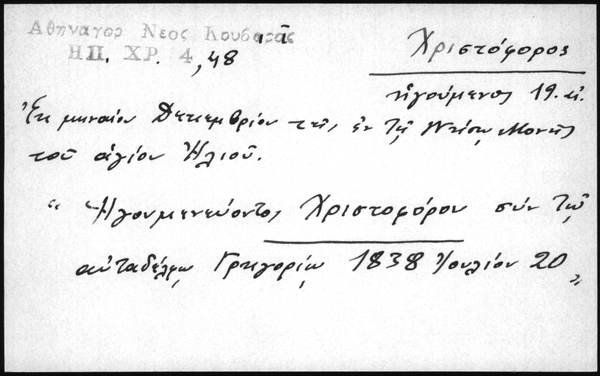 Αθηναγορ Νεος Κουβαρᾶς
ΗΠ. ΧΡ. 4, 48
Χριστόφορος
ἡγούμενος 19. αἰ.
Ἐκ μηναίου Δεκεμβρίου ἐν τῇ Μονῆς
τοῦ ἁγίου Ἠλιοῦ.
"Ἡγουμενεύοντος Χριστοφόρου σύν τῷ
αὐταδέλφῳ Γρηγορίῳ 1838 Ἰουλίου 20"